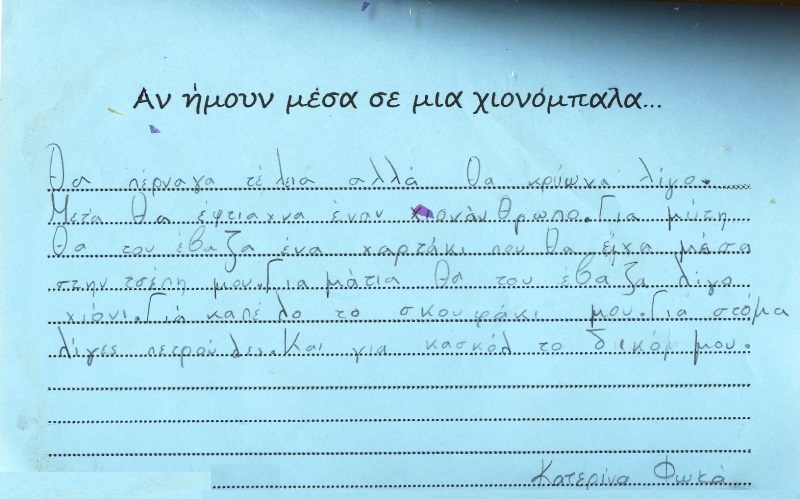 Αν ήμουν μέσα σε μια χιονόμπαλα...
Θα πέρναγα τέλεια αλλά θα κρύωνα λίγο.
Μετά θα έφτιαχνα έναν χιονάνθρωπο. Για μύτη
θα του έβαζα ένα χαρτάκι που θα είχα μέσα
στην τσέπη μου. Για μάτια θα του έβαζα λίγο
χιόνι. Για καπέλο το σκουφάκι μου. Για στόμα
λίγες πετρούλες. Και για κασκόλ το δικόμ μου.
Κατερίνα Φωκά